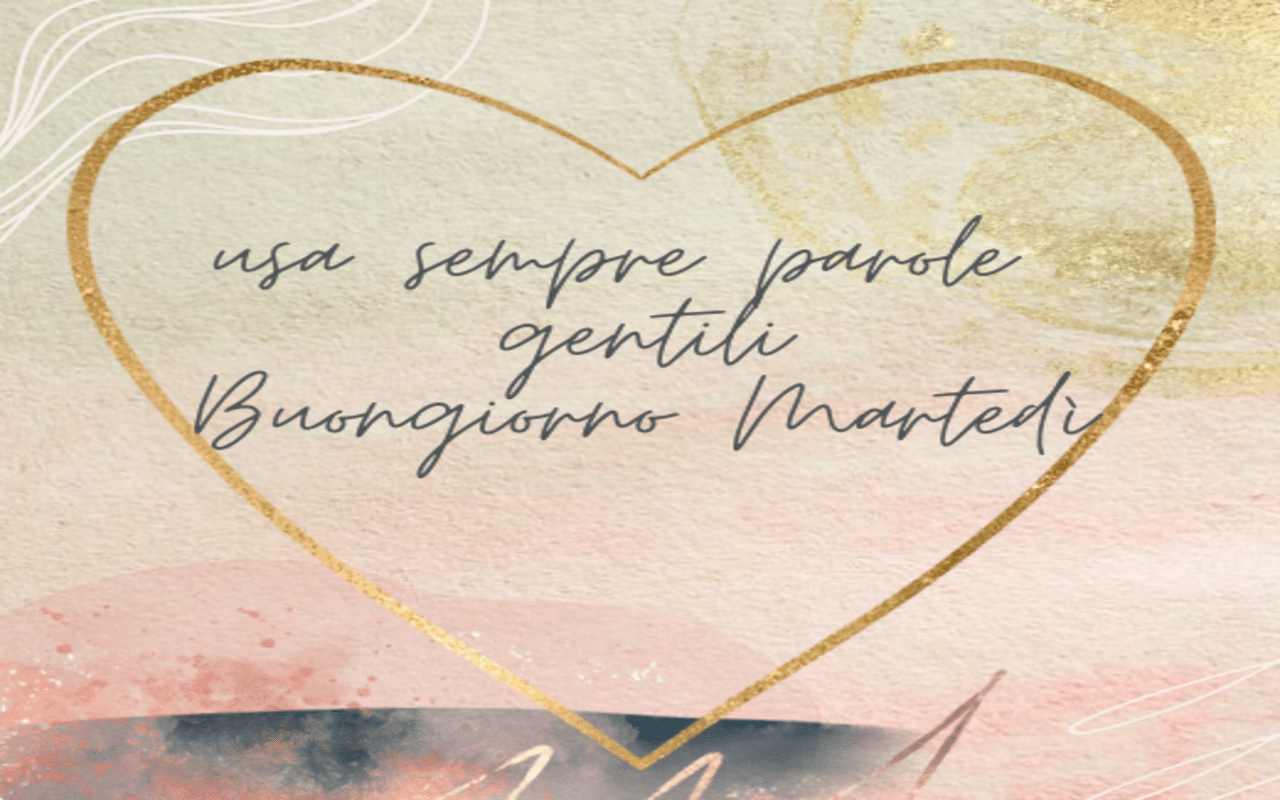 usa sempre parole
gentili
Buongiorno Martedì